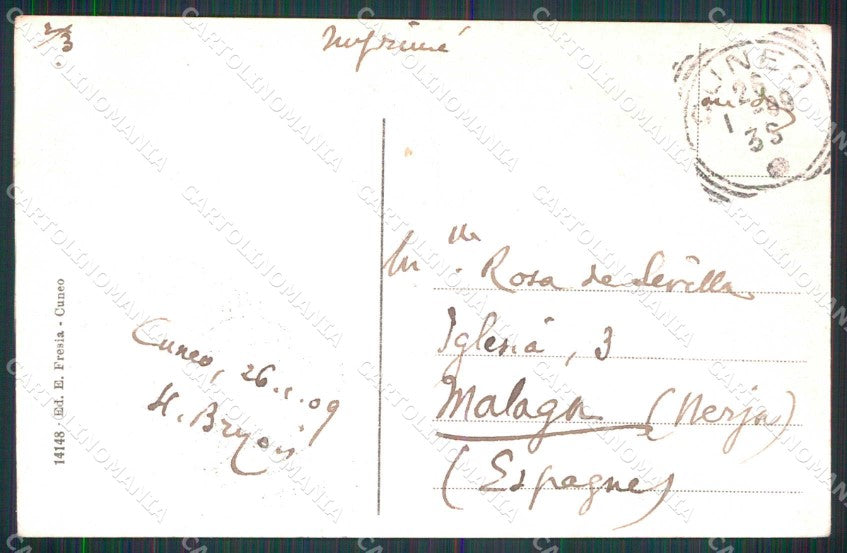 2/3
Imprimé
CUNEO
1 35
Mlle. Rosa de Sevilla
Iglesia, 3
Malaga (Nerja)
(Espagne)
Cuneo, 26.1.09
H.
14148 - Ed. E. Fresia - Cuneo
CARTOLINOMANIA